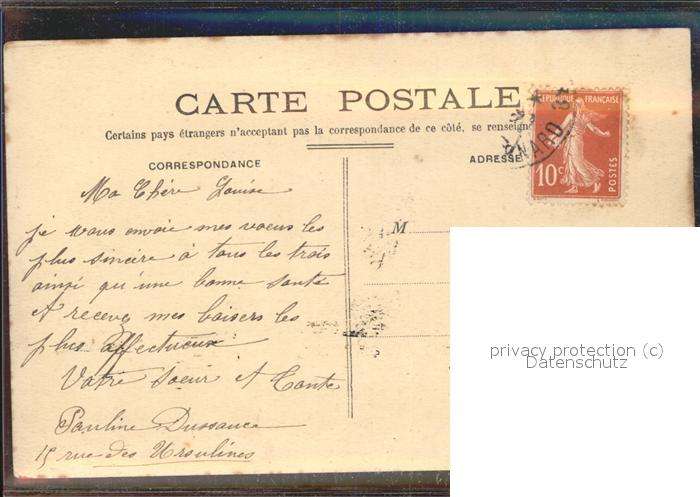 CARTE POSTALE
Certains pays étrangers n'acceptant pas la correspondance de ce côté, se renseign
CORRESPONDANCE
ADRESSE
REPUBLIQUE FRANÇAISE
10c
POSTES
NARD
M
Ma Chère Louise
je vous envoie mes voeux les
plus sincère à tous les trois
ainsi qu'une bonne santé
Et recevez mes baisers les
plus affectueux
Votre soeur et Tante
Pauline
15 rue des Ursulines
privacy protection (c)
Datenschutz